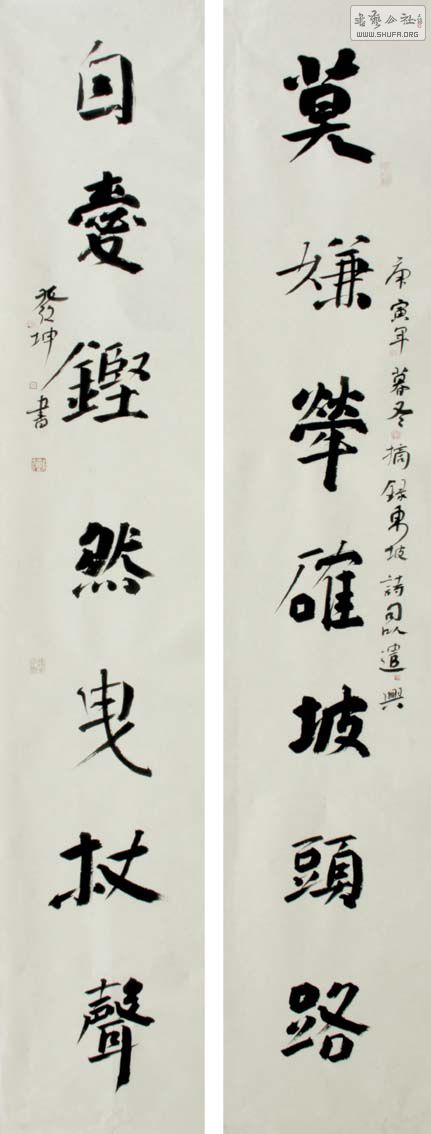 書藝公社
WWW.SHUFA.ORG
莫嫌犖確坡頭路
庚寅年暮冬摘録東坡詩句以遣興
自愛鏗然曳杖聲
發坤書